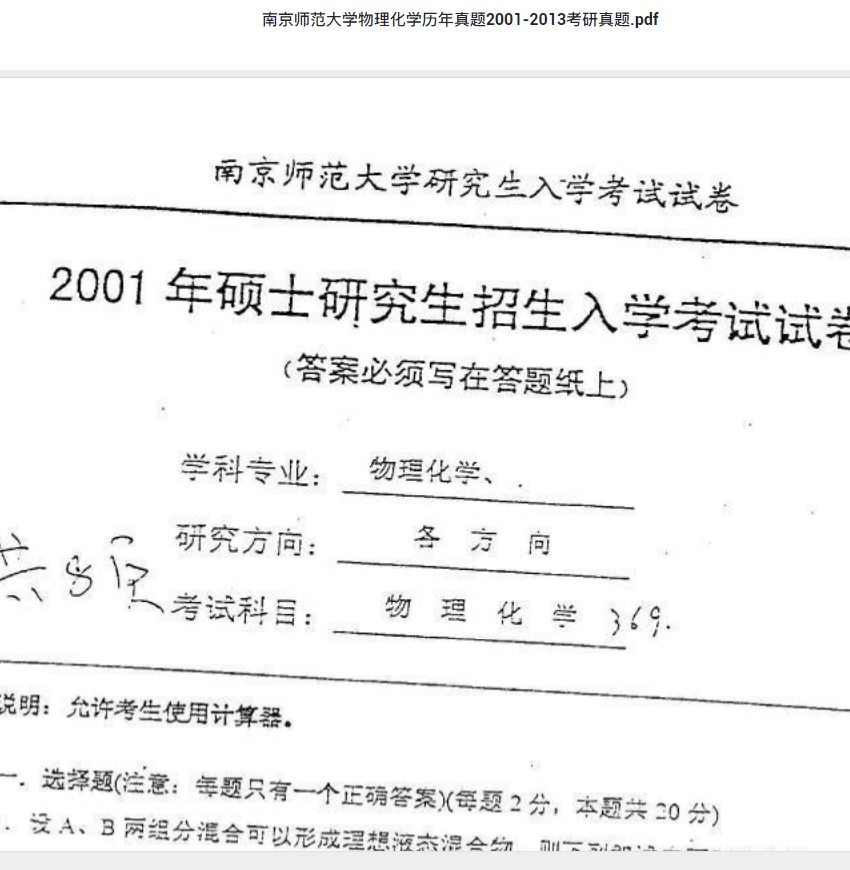 南京师范大学物理化学历年真题2001-2013考研真题.pdf
南京师范大学研究生入学考试试卷
2001 年硕士研究生招生入学考试试卷
(答案必须写在答题纸上)
学科专业: 物理化学、
研究方向: 各 方 向
共8页
考试科目: 物 理 化 学 369.
说明: 允许考生使用计算器。
一. 选择题(注意: 每题只有一个正确答案)(每题 2 分, 本题共 20 分)
. 设 A、B 两组分混合可以形成理想液态混合物, 则下列